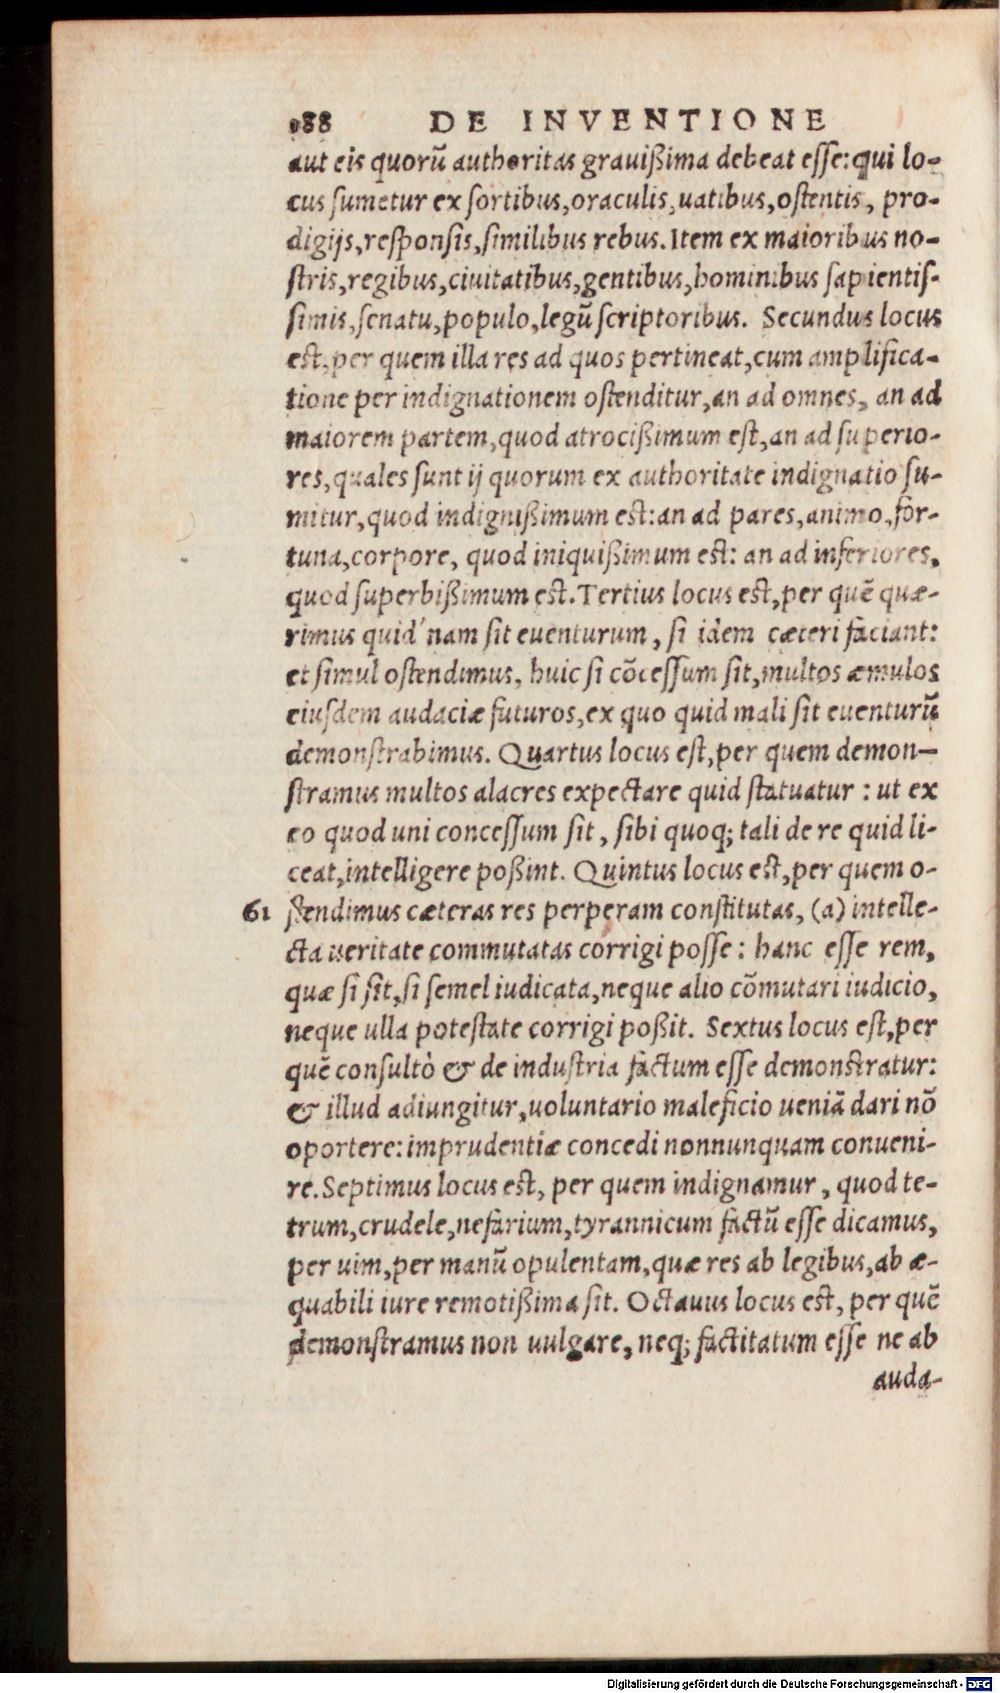 188 DE INVENTIONE
aut eis quorũ authoritas grauißima debeat esse: qui lo-
cus sumetur ex sortibus, oraculis, uatibus, ostentis, pro-
digijs, responsis, similibus rebus. Item ex maioribus no-
stris, regibus, ciuitatibus, gentibus, hominibus sapientis-
simis, senatu, populo, legũ scriptoribus. Secundus locus
est, per quem illa res ad quos pertineat, cum amplifica-
tione per indignationem ostenditur, an ad omnes, an ad
maiorem partem, quod atrocißimum est, an ad superio-
res, quales sunt ij quorum ex authoritate indignatio su-
mitur, quod indignißimum est: an ad pares, animo, for-
tuna, corpore, quod iniquißimum est: an ad inferiores,
quod superbißimum est. Tertius locus est, per quẽ quæ-
rimus quid nam sit euenturum, si idem cæteri faciant:
et simul ostendimus, huic si cõcessum sit, multos æmulos
eiusdem audaciæ futuros, ex quo quid mali sit euenturũ
demonstrabimus. Quartus locus est, per quem demon-
stramus multos alacres expectare quid statuatur: ut ex
eo quod uni concessum sit, sibi quoq; tali de re quid li-
ceat, intelligere poßint. Quintus locus est, per quem o-
61 stendimus cæteras res perperam constitutas, (a) intelle-
cta ueritate commutatas corrigi posse: hanc esse rem,
quæ si sit, si semel iudicata, neque alio cõmutari iudicio,
neque ulla potestate corrigi poßit. Sextus locus est, per
quẽ consultò & de industria factum esse demonstratur:
& illud adiungitur, uoluntario maleficio ueniã dari nõ
oportere: imprudentiæ concedi nonnunquam conueni-
re. Septimus locus est, per quem indignamur, quod te-
trum, crudele, nefarium, tyrannicum factũ esse dicamus,
per uim, per manũ opulentam, quæ res ab legibus, ab æ-
quabili iure remotißima sit. Octauus locus est, per quẽ
demonstramus non uulgare, neq; factitatum esse ne ab
auda-
Digitalisierung gefördert durch die Deutsche Forschungsgemeinschaft - DFG